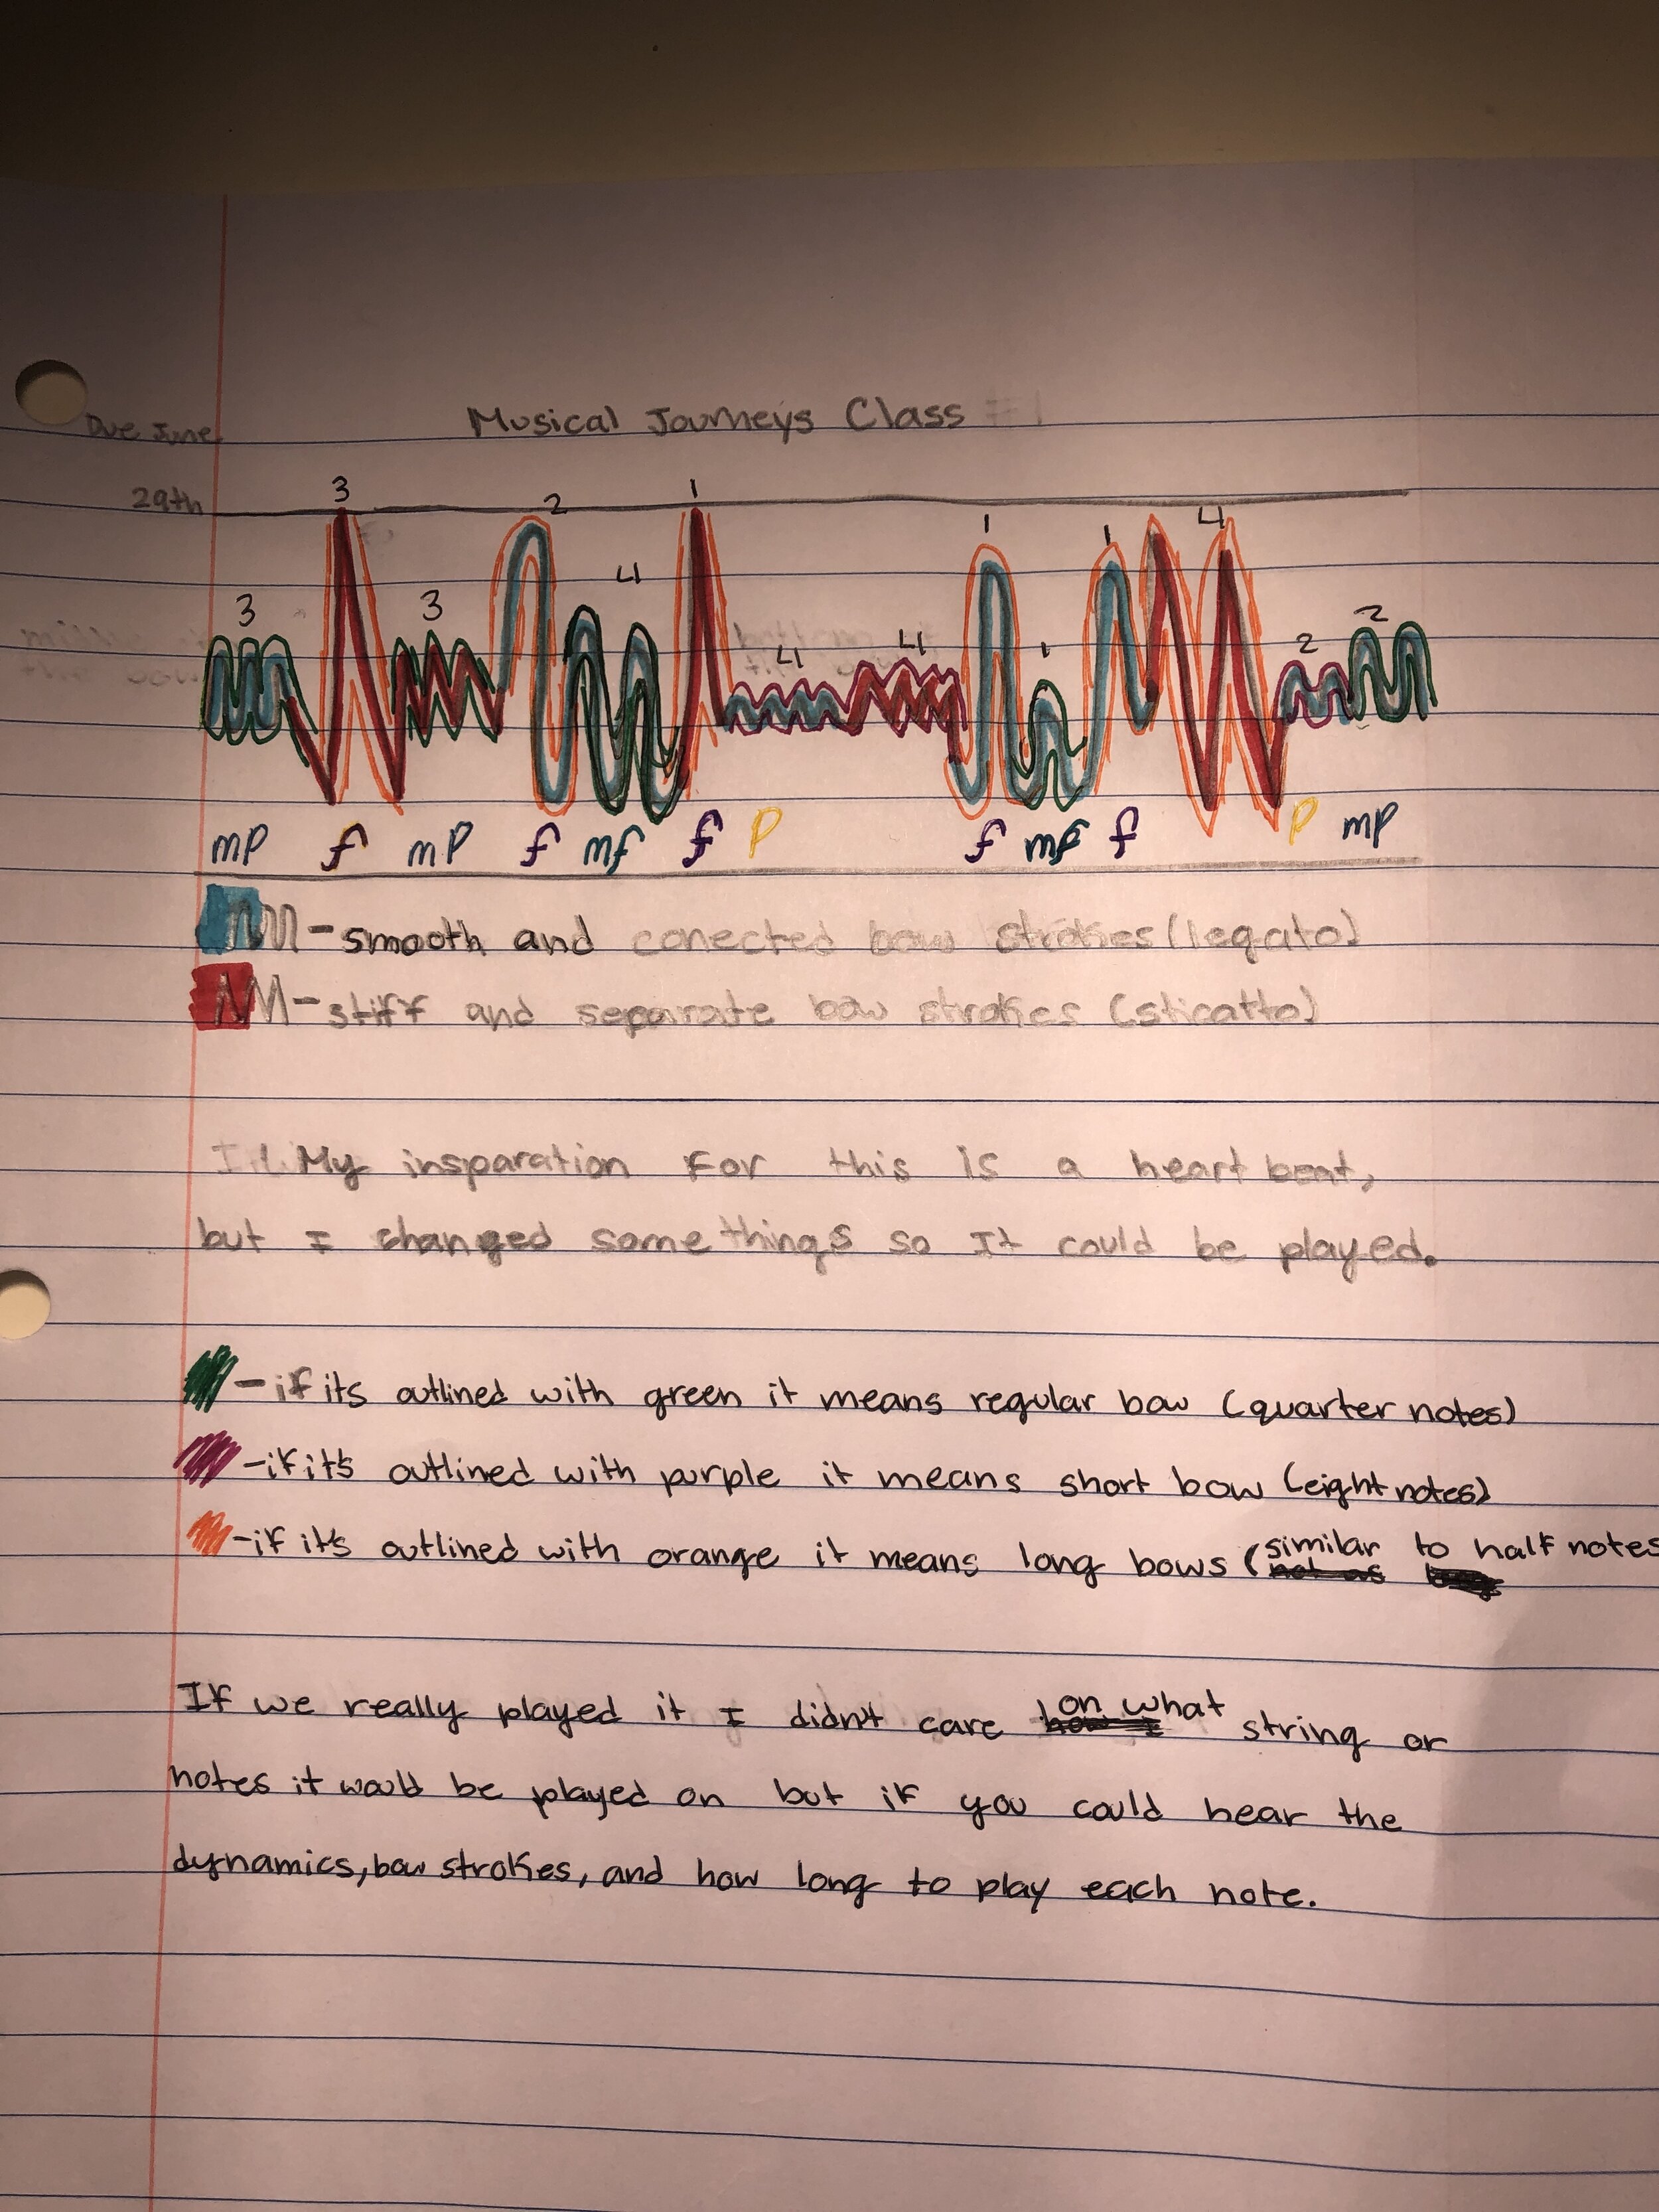 Musical Journeys Class #1
Due June
29th
3 2 1
4 1 1 4
3 3 2
4 4 1 2
mp f mp f mf f p f mf f p mp
- smooth and conected bow strokes (legato)
- stiff and separate bow strokes (sticatto)
My insparation for this is a heart beat,
but I changed some things so It could be played.
- if its outlined with green it means regular bow (quarter notes)
- if it's outlined with purple it means short bow (eight notes)
- if it's outlined with orange it means long bows (similar to half notes
If we really played it I didn't care on what string or
notes it would be played on but if you could hear the
dynamics, bow strokes, and how long to play each note.